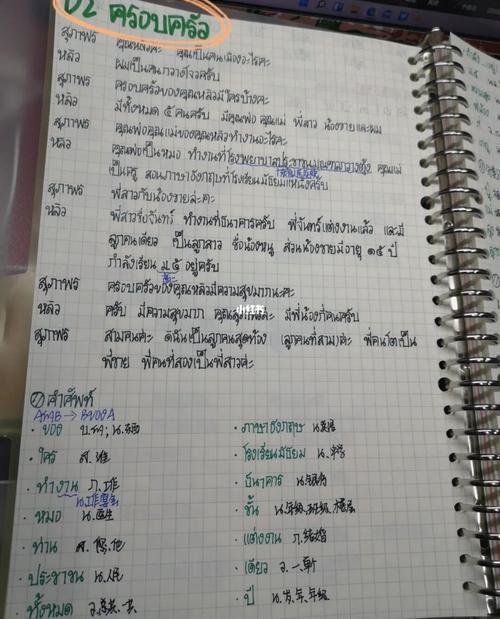 02 ครอบครัว
สุภาพร คุณหลิวคะ คุณเป็นคนเมืองอะไรคะ
หลิว ผมเป็นคนกวางโจวครับ
สุภาพร ครอบครัวของคุณหลิวมีใครบ้างคะ
หลิว มีทั้งหมด ๕ คนครับ มีคุณพ่อ คุณแม่ พี่สาว น้องชายและผม
สุภาพร คุณพ่อคุณแม่ของคุณหลิวทำงานอะไรคะ
หลิว คุณพ่อเป็นหมอ ทำงานที่โรงพยาบาลประชาชนมณฑลกวางตุ้ง คุณแม่
เป็นครู สอนภาษาอังกฤษที่โรงเรียนมัธยมแห่งหนึ่งครับ
สุภาพร พี่สาวกับน้องชายล่ะคะ
หลิว พี่สาวชื่อจันทร์ ทำงานที่ธนาคารครับ พี่จันทร์แต่งงานแล้ว และมี
ลูกคนเดียว เป็นลูกสาว ชื่อน้องหนู ส่วนน้องชายมีอายุ ๑๕ ปี
กำลังเรียน ม.๕ อยู่ครับ
สุภาพร ครอบครัวของคุณหลิวมีความสุขมากนะคะ
หลิว ครับ มีความสุขมาก คุณสุภาพรล่ะ มีพี่น้องกี่คนครับ
สุภาพร สามคนค่ะ ดิฉันเป็นลูกคนสุดท้อง (ลูกคนที่สาม)ค่ะ พี่คนโตเป็น
พี่ชาย พี่คนที่สองเป็นพี่สาวค่ะ
小红书
คำศัพท์
A的B → BของA
· ของ บ.的; น.
· ใคร ส.谁
· ทำงาน ก.工作
· หมอ น.医生
· ท่าน ส.您,他
· ประชาชน น.人民
· ทั้งหมด ว.
· ภาษาอังกฤษ น.英语
· โรงเรียนมัธยม น.中学
· ธนาคาร น.银行
· ชั้น น.年级,班级,楼层
· แต่งงาน ก.结婚
· เดียว ว.一,单
· ปี น.岁,年,年级